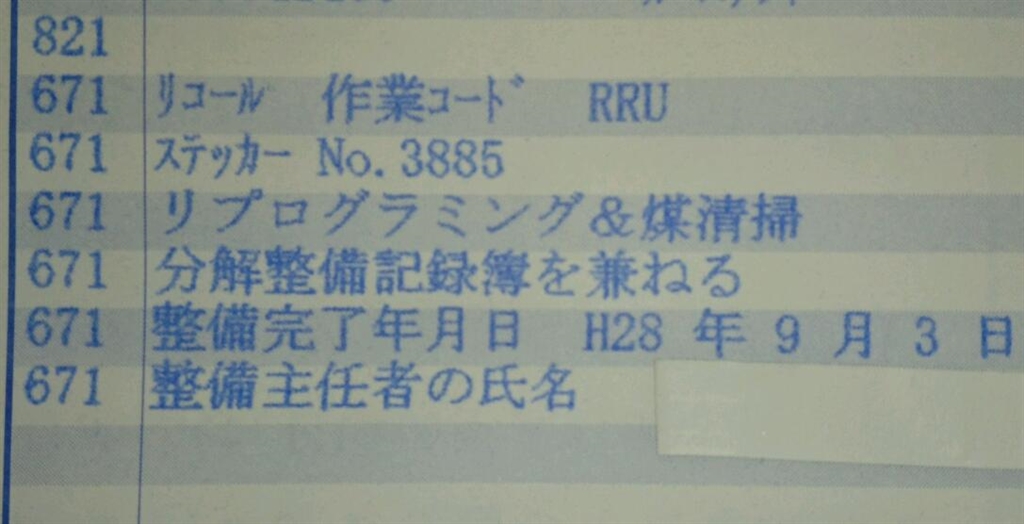 821
671 ﾘｺｰﾙ 作業ｺｰﾄﾞ RRU
671 ｽﾃｯｶｰ No.3885
671 リプログラミング＆煤清掃
671 分解整備記録簿を兼ねる
671 整備完了年月日 H28 年 9 月 3 日
671 整備主任者の氏名